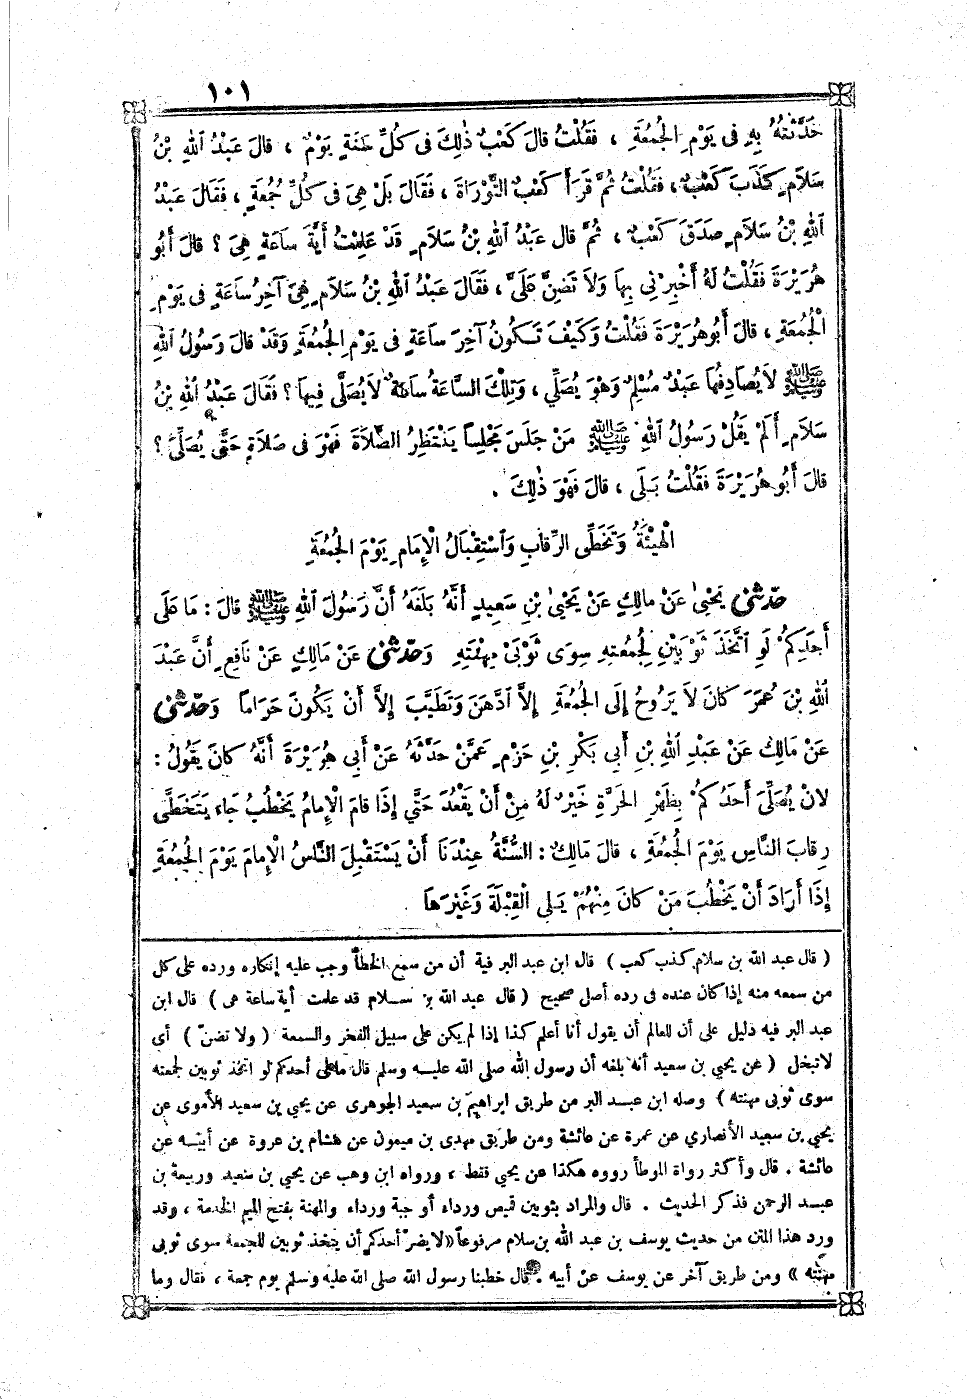 ١٠١
حَدَّثْتُهُ بِهِ فى يَوْمِ الْجُمُعَةِ ، فَقُلْتُ قالَ كَعْبٌ ذٰلِكَ فى كُلِّ سَنَةٍ يَوْمٌ ، قالَ عَبْدُ اللهِ بْنُ
سَلَامٍ كَذَبَ كَعْبٌ ، فَقُلْتُ ثُمَّ قَرَأَ كَعْبٌ التَّوْرَاةَ ، فَقَالَ بَلْ هِىَ فى كُلِّ جُمُعَةٍ ، فَقَالَ عَبْدُ
اللهِ بْنُ سَلَامٍ صَدَقَ كَعْبٌ ، ثُمَّ قال عَبْدُ اللهِ بْنُ سَلَامٍ قَدْ عَلِمْتُ أَيَّةَ ساعَةٍ هِىَ ؟ قالَ أَبُو
هُرَيْرَةَ فَقُلْتُ لَهُ أَخْبِرْنِى بِهَا وَلَا تَضِنَّ عَلَىَّ ، فَقَالَ عَبْدُ اللهِ بْنُ سَلَامٍ هِىَ آخِرُ ساعَةٍ فى يَوْمِ
الْجُمُعَةِ ، قالَ أَبُو هُرَيْرَةَ فَقُلْتُ وَكَيْفَ تَكُونُ آخِرَ ساعَةٍ فى يَوْمِ الْجُمُعَةِ وَقَدْ قالَ رَسُولُ اللهِ
ﷺ لَا يُصَادِفُهَا عَبْدٌ مُسْلِمٌ وَهُوَ يُصَلِّي ، وَتِلْكَ السَّاعَةُ ساعَةٌ لَا يُصَلَّى فِيهَا ؟ فَقَالَ عَبْدُ اللهِ بْنُ
سَلَامٍ أَلَمْ يَقُلْ رَسُولُ اللهِ ﷺ مَنْ جَلَسَ مَجْلِساً يَنْتَظِرُ الصَّلَاةَ فَهُوَ فى صَلَاةٍ حَتَّى يُصَلِّىَ ؟
قالَ أَبُو هُرَيْرَةَ فَقُلْتُ بَلَى ، قالَ فَهُوَ ذٰلِكَ .
الْهَيْئَةُ وَتَخَطِّى الرِّقابِ وَاسْتِقْبَالُ الْإِمَامِ يَوْمَ الْجُمُعَةِ
حدّثنى يَحْيَى عَنْ مالِكٍ عَنْ يَحْيَى بْنِ سَعِيدٍ أَنَّهُ بَلَغَهُ أَنَّ رَسُولَ اللهِ ﷺ قالَ : مَا عَلَى
أَحَدِكُمْ لَوِ اتَّخَذَ ثَوْبَيْنِ لِجُمُعَتِهِ سِوَى ثَوْبَىْ مِهْنَتِهِ وَحدّثنى عَنْ مَالِكٍ عَنْ نَافِعٍ أَنَّ عَبْدَ
اللهِ بْنَ عُمَرَ كَانَ لَا يَرُوحُ إِلَى الْجُمُعَةِ إِلاَّ ادَّهَنَ وَتَطَيَّبَ إِلاَّ أَنْ يَكُونَ حَرَاماً وَحدّثنى
عَنْ مَالِكٍ عَنْ عَبْدِ اللهِ بْنِ أَبِي بَكْرِ بْنِ حَزْمٍ عَمَّنْ حَدَّثَهُ عَنْ أَبِي هُرَيْرَةَ أَنَّهُ كَانَ يَقُولُ :
لَانْ يُصَلِّىَ أَحَدُكُمْ بِظَهْرِ الحَرَّةِ خَيْرٌ لَهُ مِنْ أَنْ يَقْعُدَ حَتَّى إِذَا قامَ الْإِمَامُ يَخْطُبُ جَاءَ يَتَخَطَّى
رِقابَ النَّاسِ يَوْمَ الْجُمُعَةِ ، قالَ مَالِكٌ : السُّنَّةُ عِنْدَنَا أَنْ يَسْتَقْبِلَ النَّاسُ الْإِمَامَ يَوْمَ الْجُمُعَةِ
إِذَا أَرَادَ أَنْ يَخْطُبَ مَنْ كَانَ مِنْهُمْ يَلِى الْقِبْلَةَ وَغَيْرَهَا .
( قال عبد الله بن سلام كذب كعب ) قال ابن عبد البر فية أن من سمع الخطأ وجب عليه إنكاره ورده على كل
من سمعه منه إذا كان عنده فى رده أصل صحيح ( قال عبد الله بن سلام قد علمت أية ساعة هى ) قال ابن
عبد البر فيه دليل على أن للعالم أن يقول أنا أعلم كذا إذا لم يكن على سبيل الفخر والسمعة ( ولا تضنّ ) أي
لا تبخل ( عن يحيى بن سعيد أنه بلغه أن رسول الله صلى الله عليه وسلم قال ما على أحدكم لو اتخذ ثوبين لجمعته
سوى ثوبى مهنته ) وصله ابن عبد البر من طريق ابراهيم بن سعيد الجوهرى عن يحيى بن سعيد الأموى عن
يحيى بن سعيد الأنصاري عن عمرة عن عائشة ومن طريق مهدى بن ميمون عن هشام بن عروة عن أبيه عن
عائشة . قال وأكثر رواة الموطأ رووه هكذا عن يحيى فقط ، ورواه ابن وهب عن يحيى بن سعيد وربيعة بن
عبد الرحمن فذكر الحديث . قال والمراد بثوبين قميص ورداء أو جبة ورداء والمهنة بفتح الميم الخدمة ، وقد
ورد هذا المتن من حديث يوسف بن عبد الله بن سلام مرفوعاً «لا يضر أحدكم أن يتخذ ثوبين للجمعة سوى ثوبى
مهنته » ومن طريق آخر عن يوسف عن أبيه . قال خطبنا رسول الله صلى الله عليه وسلم يوم جمعة ، فقال وما